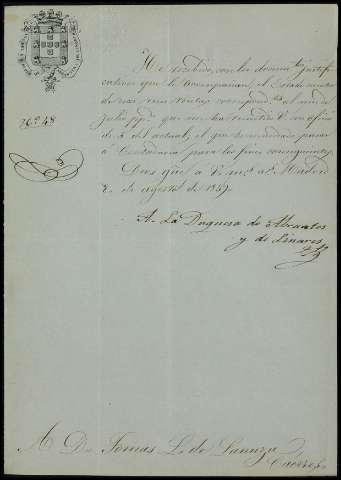 He recibido, con los docum.tos justifi-
cativos que le acompañan, el Estado
de correspond.te al mes de
Julio pp.do que me ha remitido V. con oficio
de 3 del actual, el que
á Contaduría para los fines consiguientes.
Dios gue. á V. m.s a.s Madrid
de agosto de 1849
N.º 48
A. La Duquesa de Abrantes
y de Linares
Dn. Tomas L. de Lanuza
Cáceres